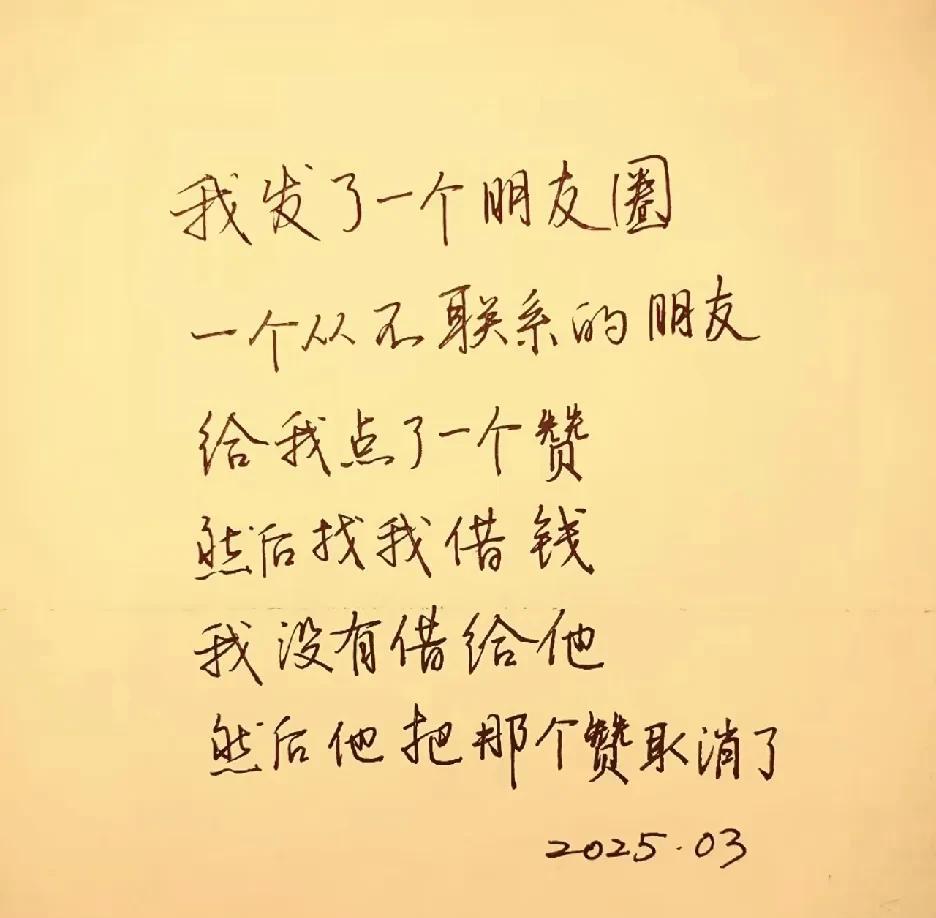 我发了一个朋友圈
一个从不联系的朋友
给我点了一个赞
然后找我借钱
我没有借给他
然后他把那个赞取消了
2025.03